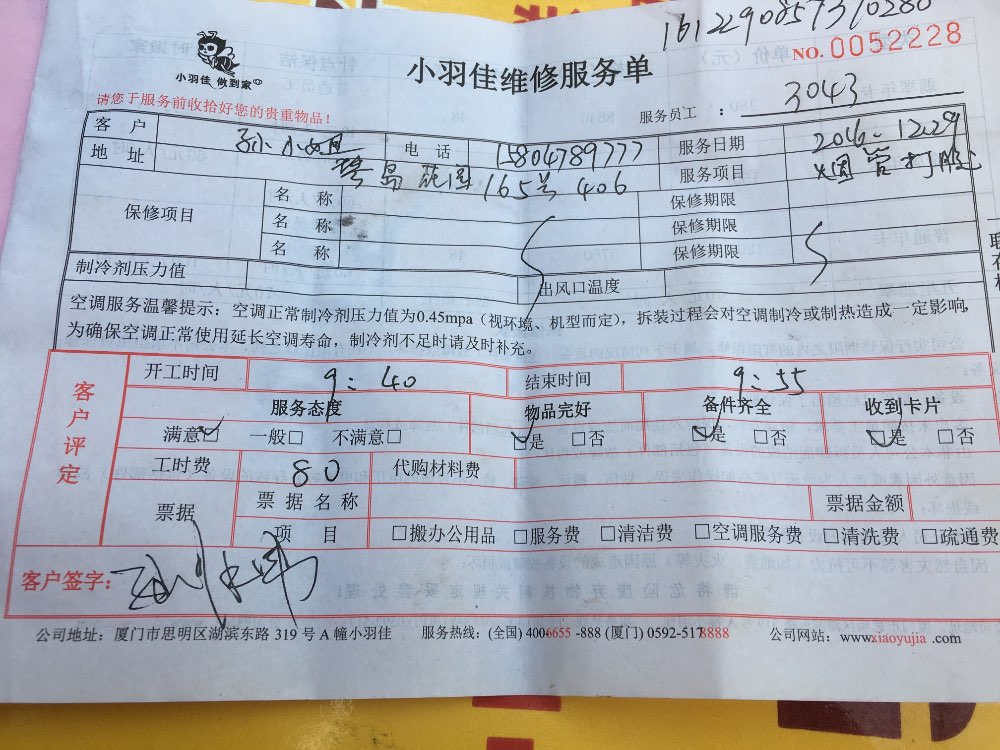 1612290857310280
NO.0052228
小羽佳 做到家
小羽佳维修服务单
请您于服务前收拾好您的贵重物品！
服务员工 ： 3043
客 户 电 话 15804789777 服务日期 2016-12.29
地 址 鹭岛花园165号406 服务项目 烟管打胶
保修项目 名 称 保修期限
名 称 保修期限
名 称 保修期限
制冷剂压力值 出风口温度
空调服务温馨提示：空调正常制冷剂压力值为0.45mpa（视环境、机型而定），拆装过程会对空调制冷或制热造成一定影响，
为确保空调正常使用延长空调寿命，制冷剂不足时请及时补充。
客户评定
开工时间 9：40 结束时间 9：55
服务态度 物品完好 备件齐全 收到卡片
满意☑ 一般□ 不满意□ ☑是 □否 ☑是 □否 ☑是 □否
工时费 80 代购材料费
票据 票据名称 票据金额
项 目 □搬办公用品 □服务费 □清洁费 □空调服务费 □清洗费 □疏通费
客户签字：
公司地址：厦门市思明区湖滨东路 319 号 A 幢小羽佳 服务热线：(全国) 4006655 -888 (厦门) 0592-5178888 公司网站：www.xiaoyujia .com